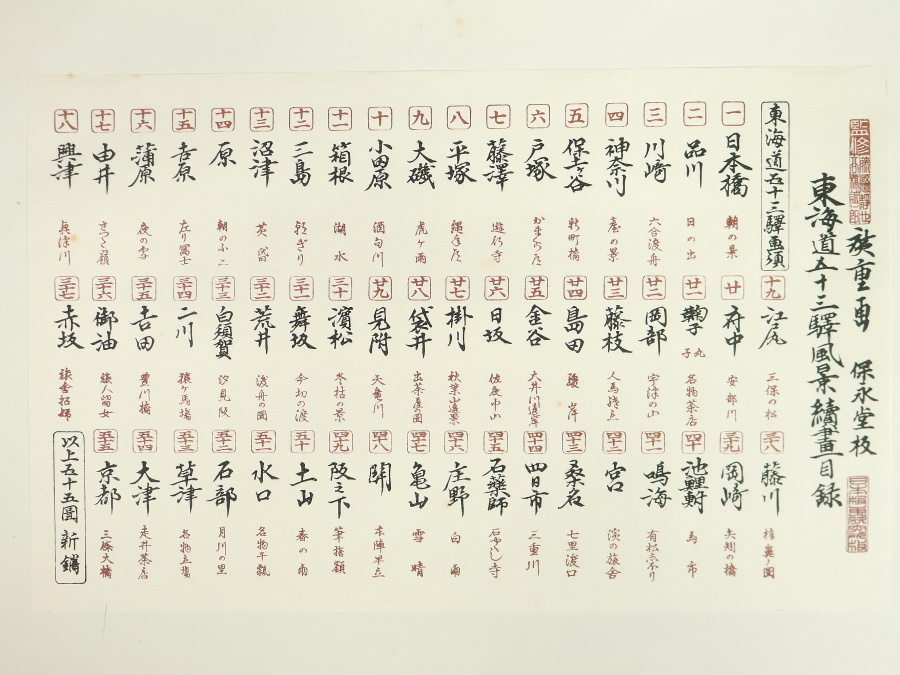 廣重画 保永堂板
東海道五十三驛風景續畫目録
東海道五十三驛画須
一 日本橋 朝の景
二 品川 日の出
三 川崎 六合渡舟
四 神奈川 臺の景
五 保土ヶ谷 新町橋
六 戸塚
七 藤澤 遊行寺
八 平塚 縄手道
九 大磯 虎ヶ雨
十 小田原 酒匂川
十一 箱根 湖水
十二 三島 朝ぎり
十三 沼津 黄昏
十四 原 朝の不二
十五 吉原 左り富士
十六 蒲原 夜の雪
十七 由井 さつた嶺
十八 興津 興津川
十九 江尻 三保の松
廿 府中 安部川
廿一 鞠子 丸子 名物茶店
廿二 岡部 宇津の山
廿三 藤枝 人馬継立
廿四 島田 駿岸
廿五 金谷 大井川遠岸
廿六 日坂 佐夜中山
廿七 掛川 秋葉山遠景
廿八 袋井 出茶屋の圖
廿九 見附 天竜川
三十 濱松 冬枯の景
三十一 舞坂 今切の渡
三十二 荒井 渡舟の圖
三十三 白須賀 汐見阪
三十四 二川 猿ヶ馬場
三十五 吉田 豊川橋
三十六 御油 旅人留女
三十七 赤坂 旅舎招婦
三十八 藤川 棒鼻ノ圖
三十九 岡崎 矢矧の橋
四十 池鯉鮒 馬市
四十一 鳴海 有松しぼり
四十二 宮 濱の旅舎
四十三 桑名 七里渡口
四十四 四日市 三重川
四十五 石薬師 石やくし寺
四十六 庄野 白雨
四十七 亀山 雪晴
四十八 関 本陣早立
四十九 阪之下 筆捨嶺
五十 土山 春の雨
五十一 水口 名物干瓢
五十二 石部 目川の里
五十三 草津 名物立場
五十四 大津 走井茶店
五十五 京都 三條大橋
以上五十五圖 新鐫